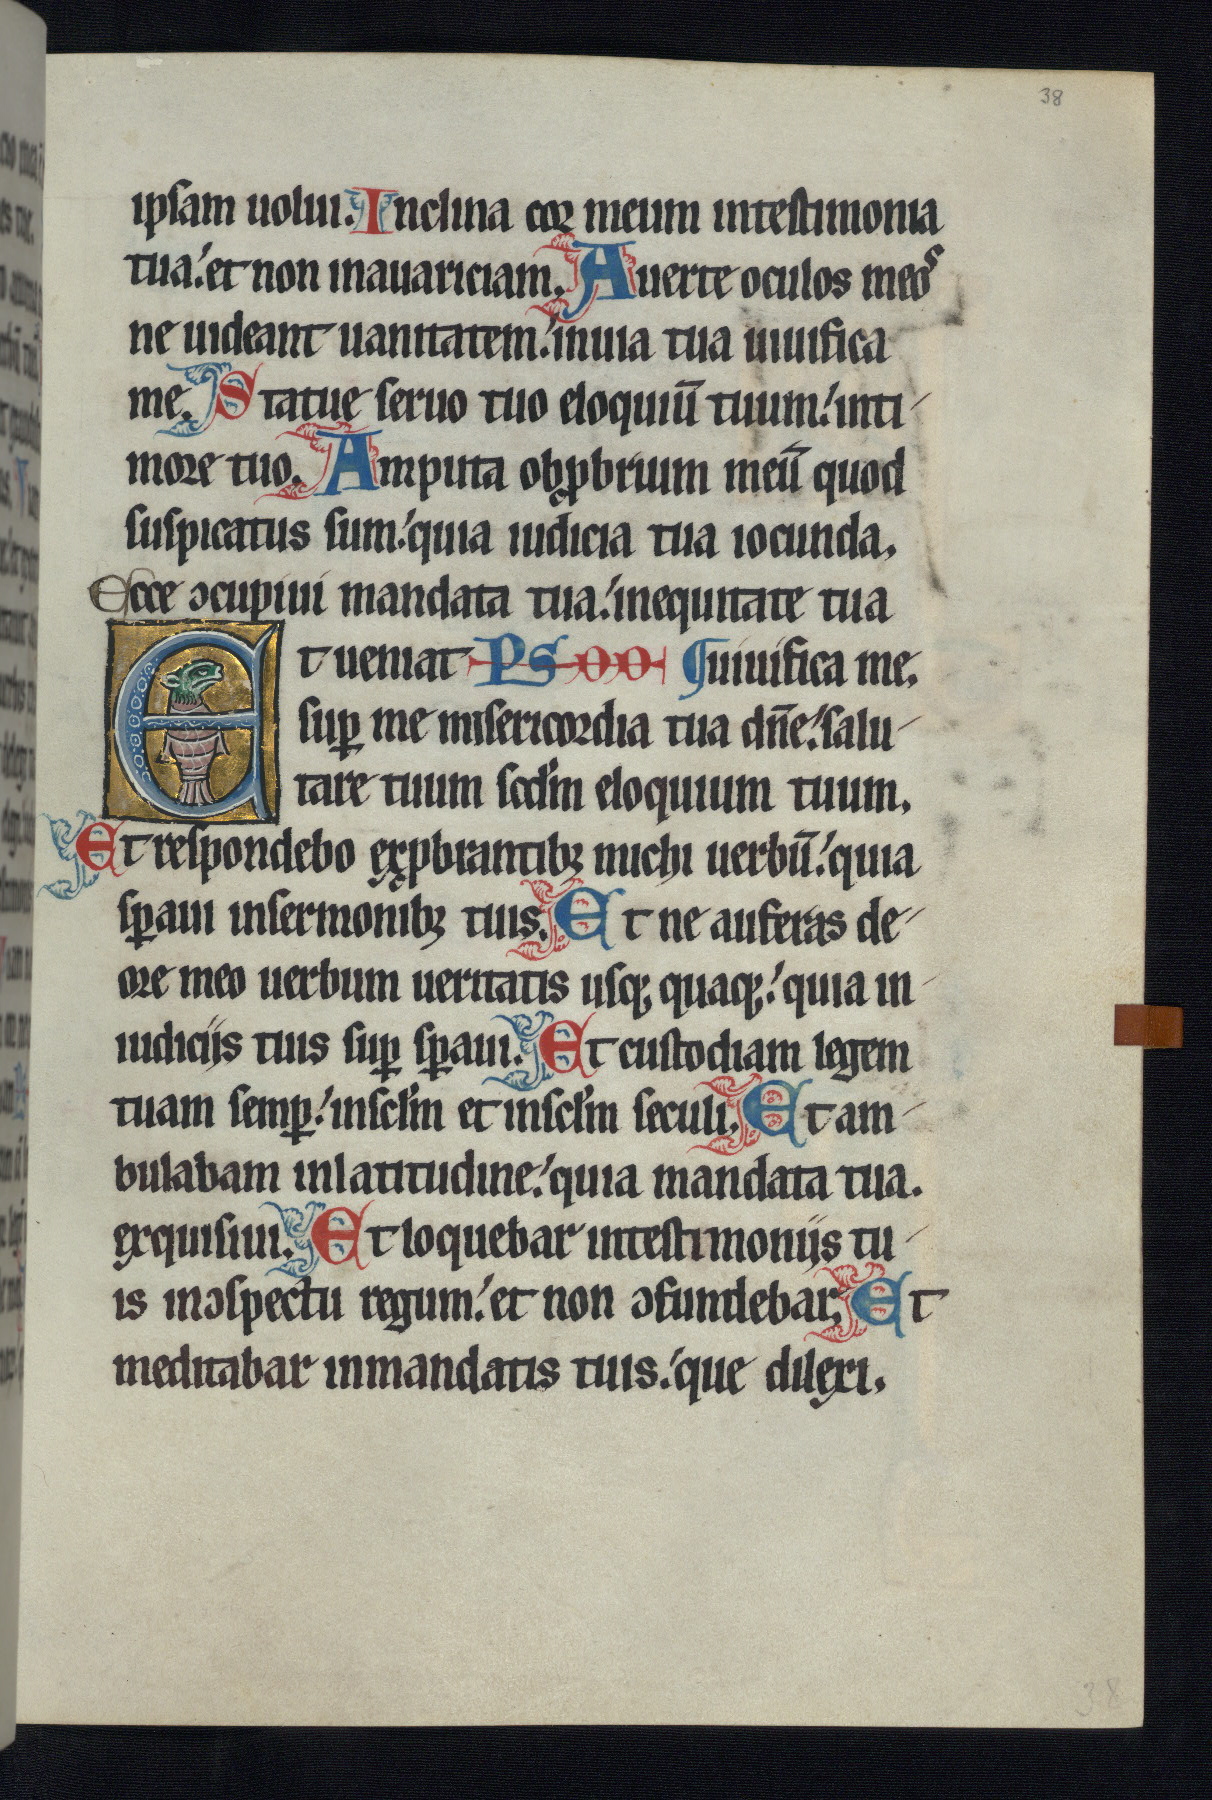 38
ipsam uolui. Inclina cor meum intestimonia
tua: et non inauariciam. Auerte oculos meos
ne uideant uanitatem: inuia tua uiuifica
me. Statue seruo tuo eloquiū tuum: inti
more tuo. Amputa obꝓbrium meū quod
suspicatus sum: quia iudicia tua iocunda.
Ecce ↄcupiui mandata tua: inequitate tua
Et ueniat PS ¶uiuifica me.
suꝑ me misericordia tua dn̄e: salu
tare tuum scd̓m eloquium tuum.
Et respondebo exꝓbrantibꝫ michi uerbū: quia
sꝑaui insermonibꝫ tuis. Et ne auferas de
ore meo uerbum ueritatis usqꝫ quaqꝫ: quia in
iudiciis tuis suꝑ sꝑaui. Et custodiam legem
tuam semꝑ: inscl̓m et inscl̓m seculi. Et am
bulabam inlatitudine: quia mandata tua.
exquisiui. Et loquebar intestimoniis tu
is inↄspectu regum: et non ↄfundebar. Et
meditabar inmandatis tuis: que dilexi.
38